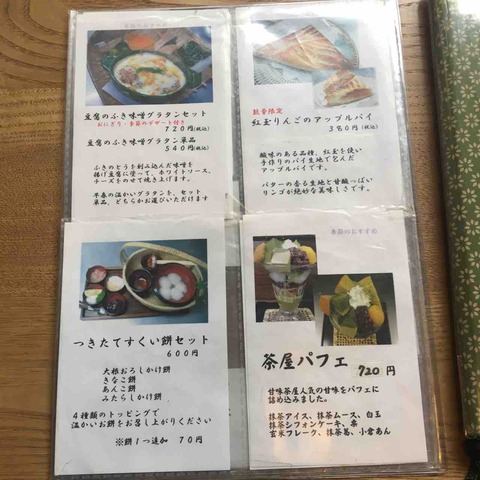 豆腐のふき味噌グラタンセット
おにぎり・季節のデザート付き
720円(税込)
豆腐のふき味噌グラタン単品
540円(税込)
ふきのとうを刻み込んだ味噌を
揚げ豆腐に塗って、ホワイトソース、
チーズをのせて焼き上げます。
早春の温かいグラタンを、セット
単品、どちらかお選びいただけます
数量限定
紅玉りんごのアップルパイ
380円(税込)
酸味のある品種、紅玉を使い
手作りのパイ生地で包んだ
アップルパイです。
バターの香る生地と甘酸っぱい
リンゴが絶妙な美味しさです。
つきたてすくい餅セット
600円
大根おろしかけ餅
きなこ餅
あんこ餅
みたらしかけ餅
4種類のトッピングで
温かいお餅をお召し上がりください
※餅1つ追加 70円
季節のおすすめ
茶屋パフェ 720円
甘味茶屋人気の甘味をパフェに
詰め込みました。
抹茶アイス、抹茶ムース、白玉
抹茶シフォンケーキ、栗
玄米フレーク、抹茶葛、小倉あん